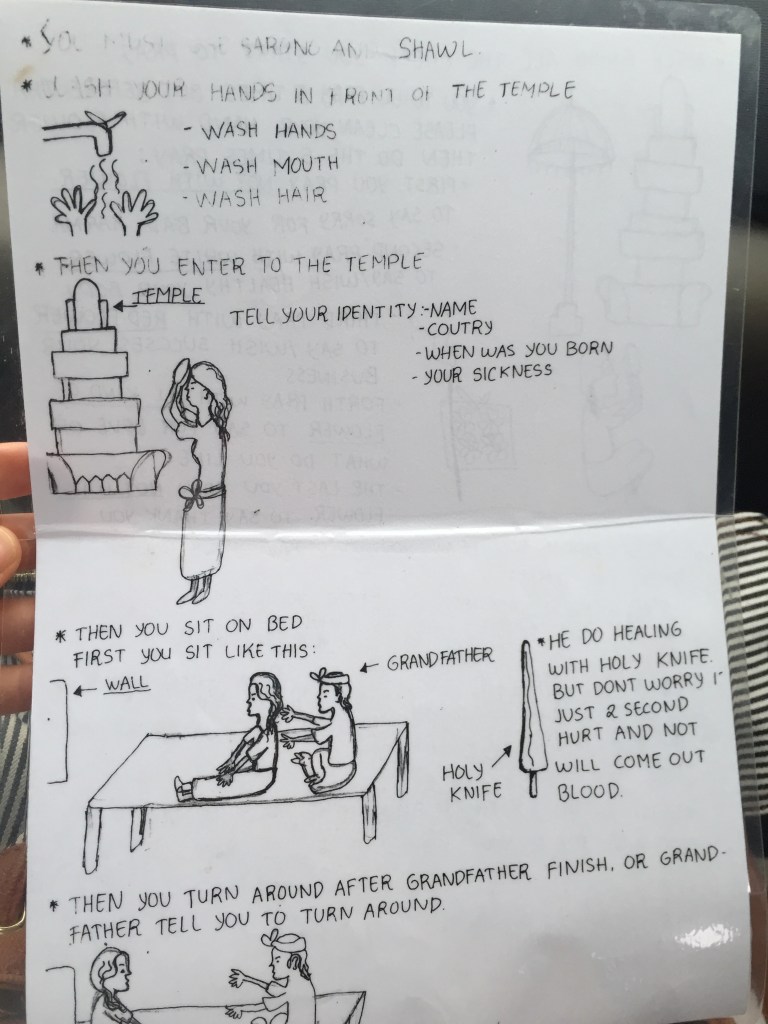 * YOU MUST SARONG AND SHAWL.
* WASH YOUR HANDS IN FRONT OF THE TEMPLE
- WASH HANDS
- WASH MOUTH
- WASH HAIR
* THEN YOU ENTER TO THE TEMPLE
TEMPLE
TELL YOUR IDENTITY :- NAME
- COUTRY
- WHEN WAS YOU BORN
- YOUR SICKNESS
* THEN YOU SIT ON BED
FIRST YOU SIT LIKE THIS:
WALL
GRANDFATHER
* HE DO HEALING
WITH HOLY KNIFE.
BUT DONT WORRY I
JUST 2 SECOND
HURT AND NOT
WILL COME OUT
BLOOD.
HOLY
KNIFE
* THEN YOU TURN AROUND AFTER GRANDFATHER FINISH, OR GRAND-
FATHER TELL YOU TO TURN AROUND.